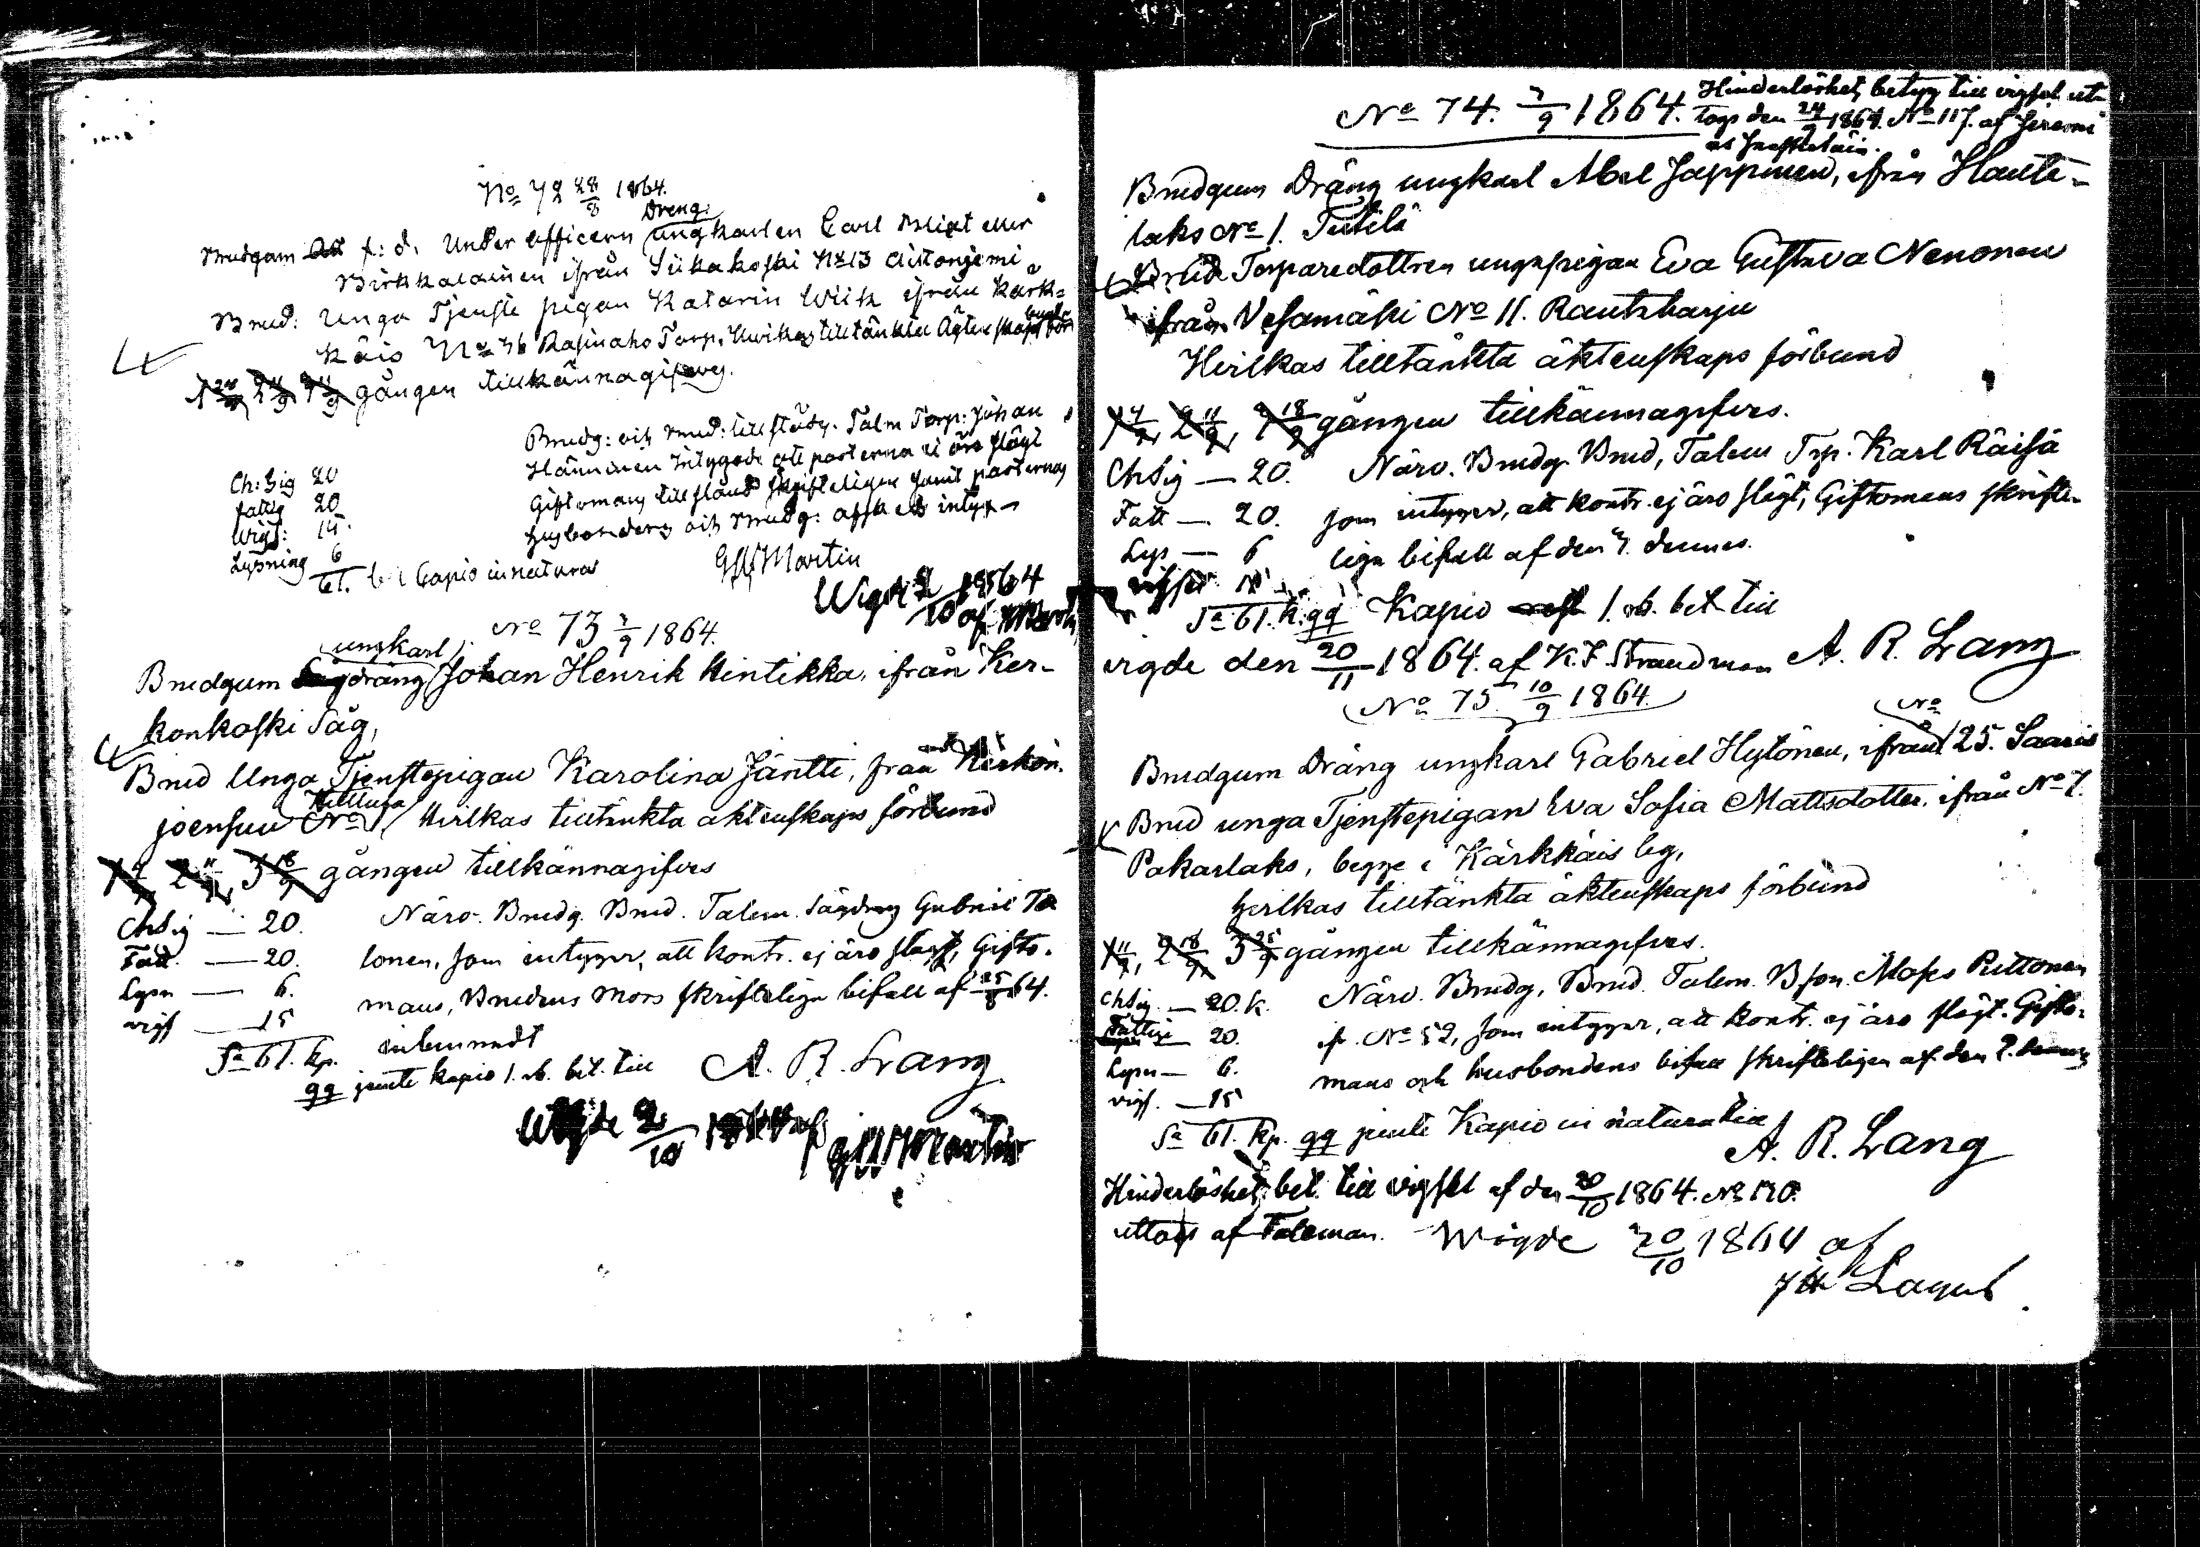 No 72 28/8 1864.
Dreng:
Brudgum f: d. Under officern ungkarlen Carl Blixt eller
Pirhkalainen ifrån Siikakoski No 13 Aitonjemi
Brud: Unga Tjenste pigan Katarin Wiik ifrån Kärk=
käis No 36 Rasinaho Torp. Hwikas tilltänkta Ägtenskaps för
bund
1 28/8 2 4/9 3 11/9 gången tillkännagifves.
Brudg: och brud: tillstädes. Talm Torp: Johan
Hänninen Intygade att parterna ei äro slägt
Giftomans tillstånd skrifteligen samt parternas
husbonders och brudg:
Ch: Sig 20
fattig 20
Wigs: 15.
Lysning 6
61. Capio in natura
GW Martin
Wigde 2/10 1864
af Martin
No 73 7/9 1864.
ungkarl
Brudgum Sågdräng Johan Henrik Hintikka, ifrån Ker-
konkoski Såg,
Brud Unga Tjenstepigan Karolina Jäntti, från Kerkon-
joensuu No 1, Hvilkas tilltänkta äktenskaps förbund
1 4/9, 2 11/9, 3 18/9 gången tillkännagifves
Chsig — 20.
Fatt. — 20.
Lysn — 6.
vigs — 15
Sa 61. kp.
Närv. Brudg. Brud. Talem. Sågdreng Gabriel Ta
lonen, som intyger, att kontr. ej äro slägt, Gifto-
mans, Brudens mors skrifteliga bifall af 25/8 64.
inlemnadt
qq jemte kapio 1. rb. bet. till A. R. Lang
Wigde 2/10 1864 af
GW Martin
No 74. 7/9 1864.
Hinderlöshets betyg till vigsel ut-
togs den 24/9 1864. No 117. af Jeremi
as
Brudgum Dräng ungkarl Abel Jappinen, ifrån Hauta-
laks No 1. Tutila
Brud Torparedottren ungapigan Eva Gustava Nenonen
ifrån Vesamäki No 11. Rautzharju
Hvilkas tilltänkta äktenskaps förbund
1 4/9, 2 11/9, 3 18/9 gången tillkännagifves.
Chsig — 20.
Fatt — 20.
Lys — 6
vigsel 15
Sa 61. k. qq
Närv. Brudg. Brud, Talem Trp. Karl Räisä
som intyger, att kontr. ej äro slägt, Giftomans skrifte-
liga bifall af den 7. dennes.
Kapio 1. rb. bet till
A. R. Lang
vigde den 20/11 1864. af K. F. Strandman
No 75. 10/9 1864.
No
Brudgum Dräng ungkarl Gabriel Hytönen, ifrån 25. Saaris
Brud unga Tjenstepigan Eva Sofia Mattsdotter, ifrån No 7.
Pakarlaks, begge i Kärkkäis by,
hvilkas tilltänkta äktenskaps förbund
1 11/9, 2 18/9 3 25/9 gången tillkännagifves.
Chsig. — 20. k.
Fattige — 20.
Lysn — 6.
vigs. — 15
Sa 61. kp. qq jemte Kapio in natura till
Närv. Brudg, Brud. Talem. Bson Moses Puttonen
fr. No 52, som intyger, att kontr. ej äro slägt. Gifto-
mans och husbondens bifall skrifteligen af den 7. dennes
A. R. Lang
Hinderlöshets bet. till vigsel af den 20/10 1864. No 120.
uttogs af Taleman. Wigde 20/10 1864 af
Lagus